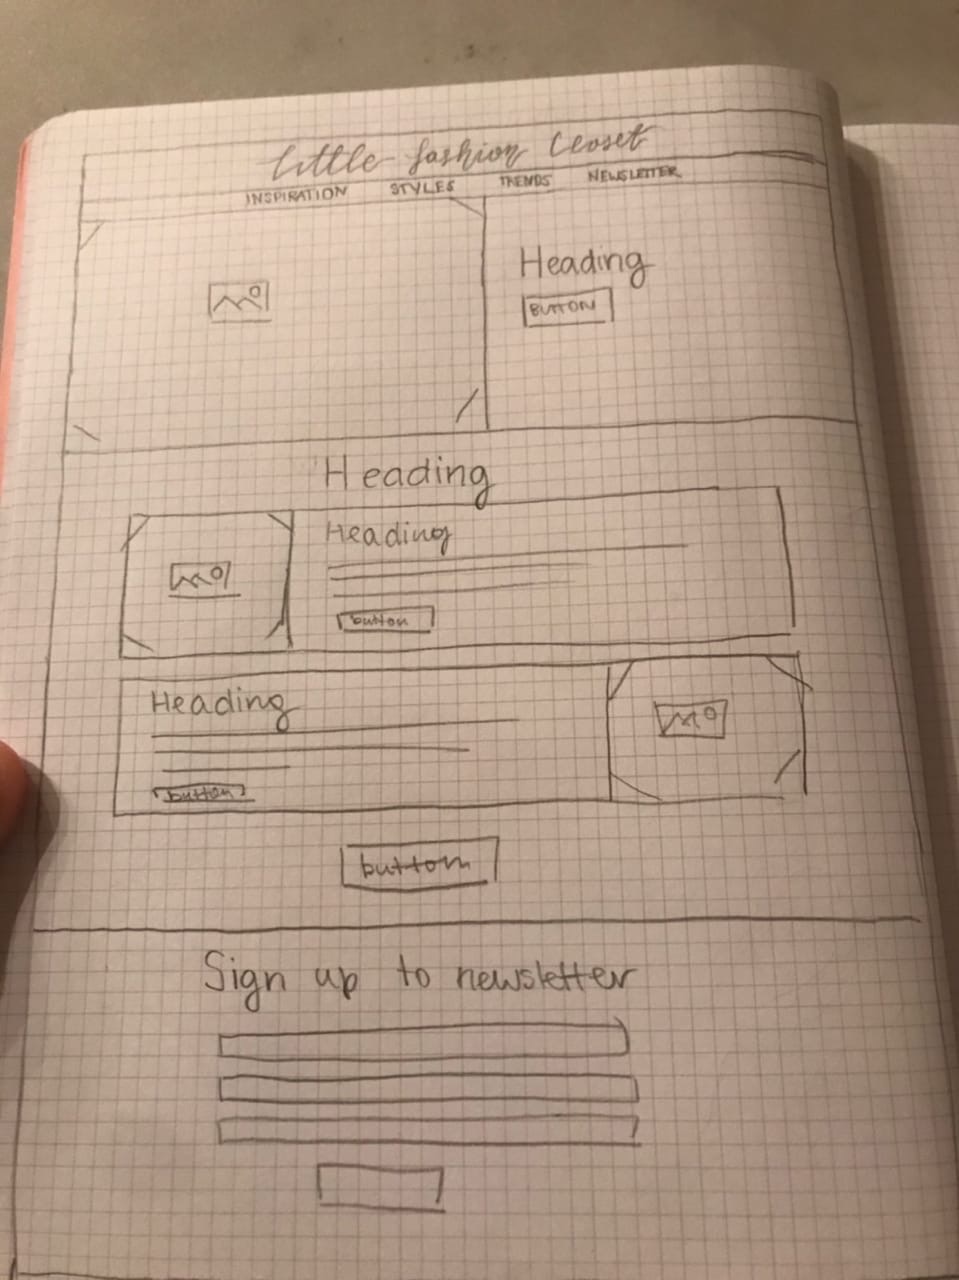 Little Fashion Closet
INSPIRATION STYLES TRENDS NEWSLETTER
Heading
BUTTON
Heading
Heading
button
Heading
button
button
Sign up to newsletter